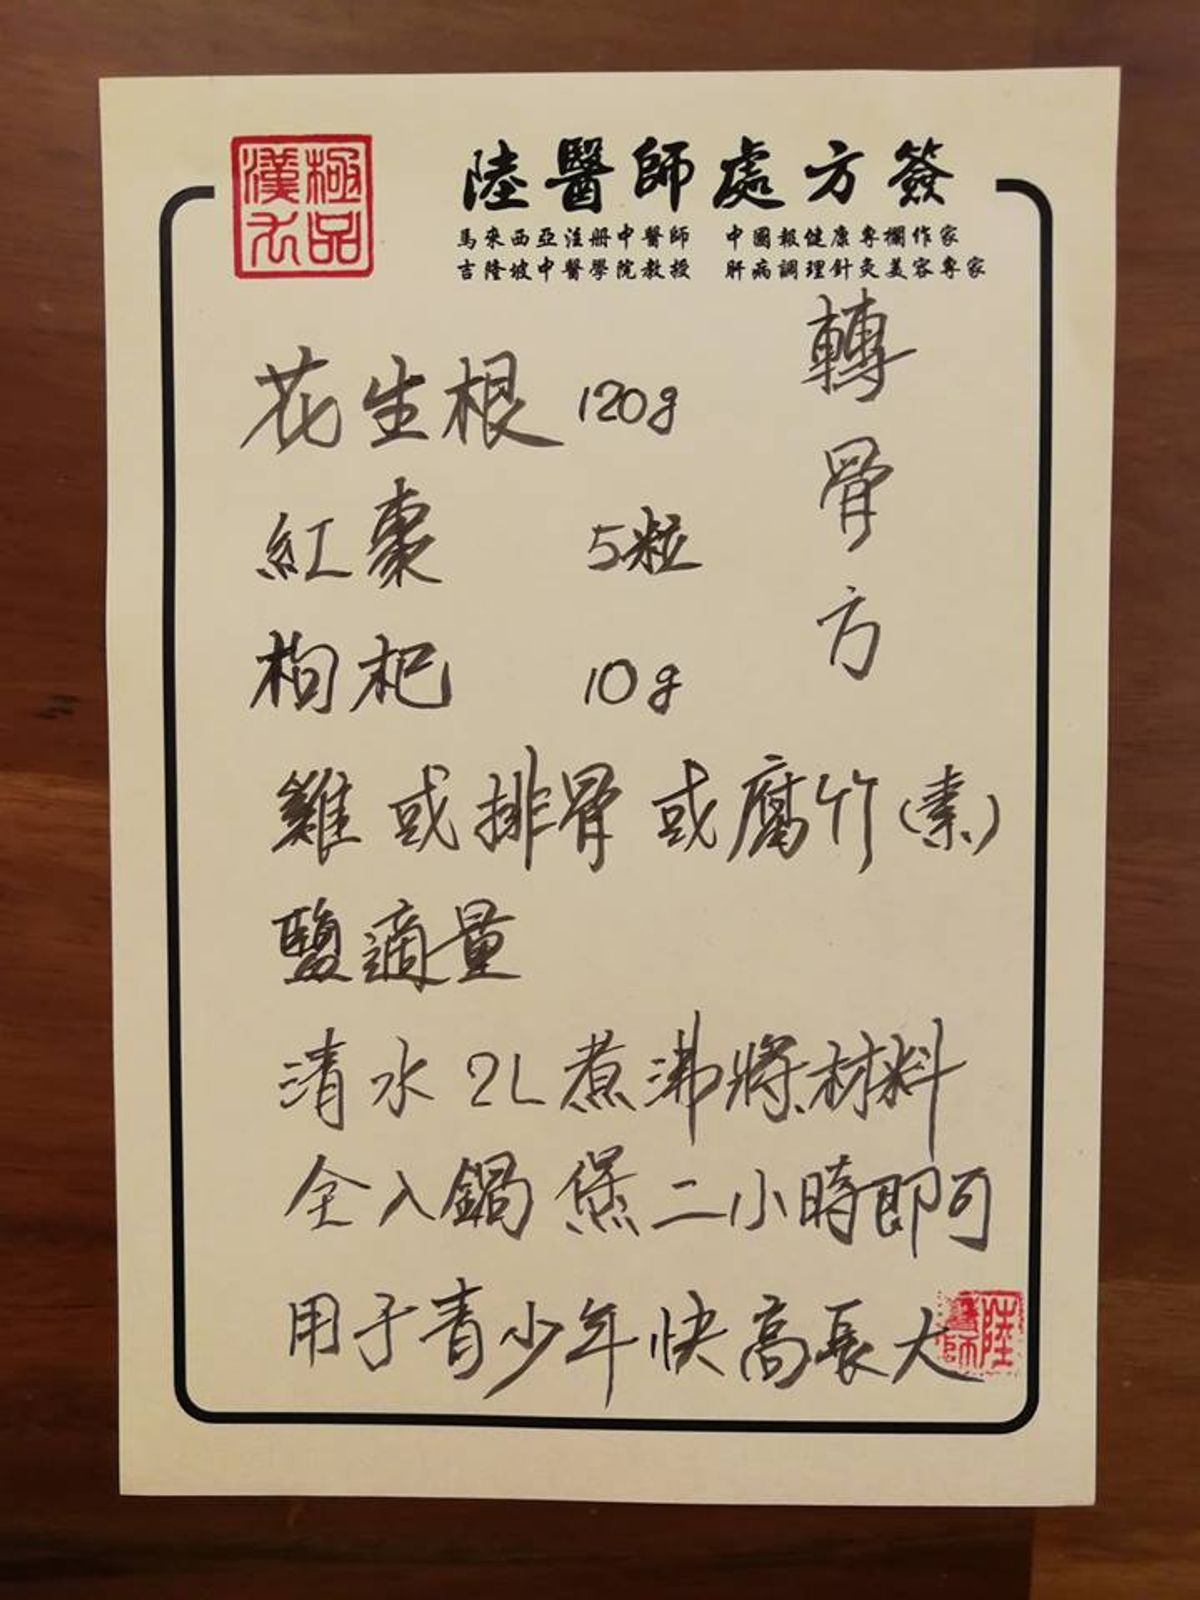 極品
漢方
陸醫師處方簽
馬來西亞注册中醫師 中國報健康專欄作家
吉隆坡中醫學院教授 肝病調理針灸美容專家
轉骨方
花生根 120g
紅棗 5粒
枸杞 10g
雞或排骨或腐竹(素)
鹽適量
清水2L煮沸將材料
全入鍋煲二小時即可
用于青少年快高長大
陸醫師